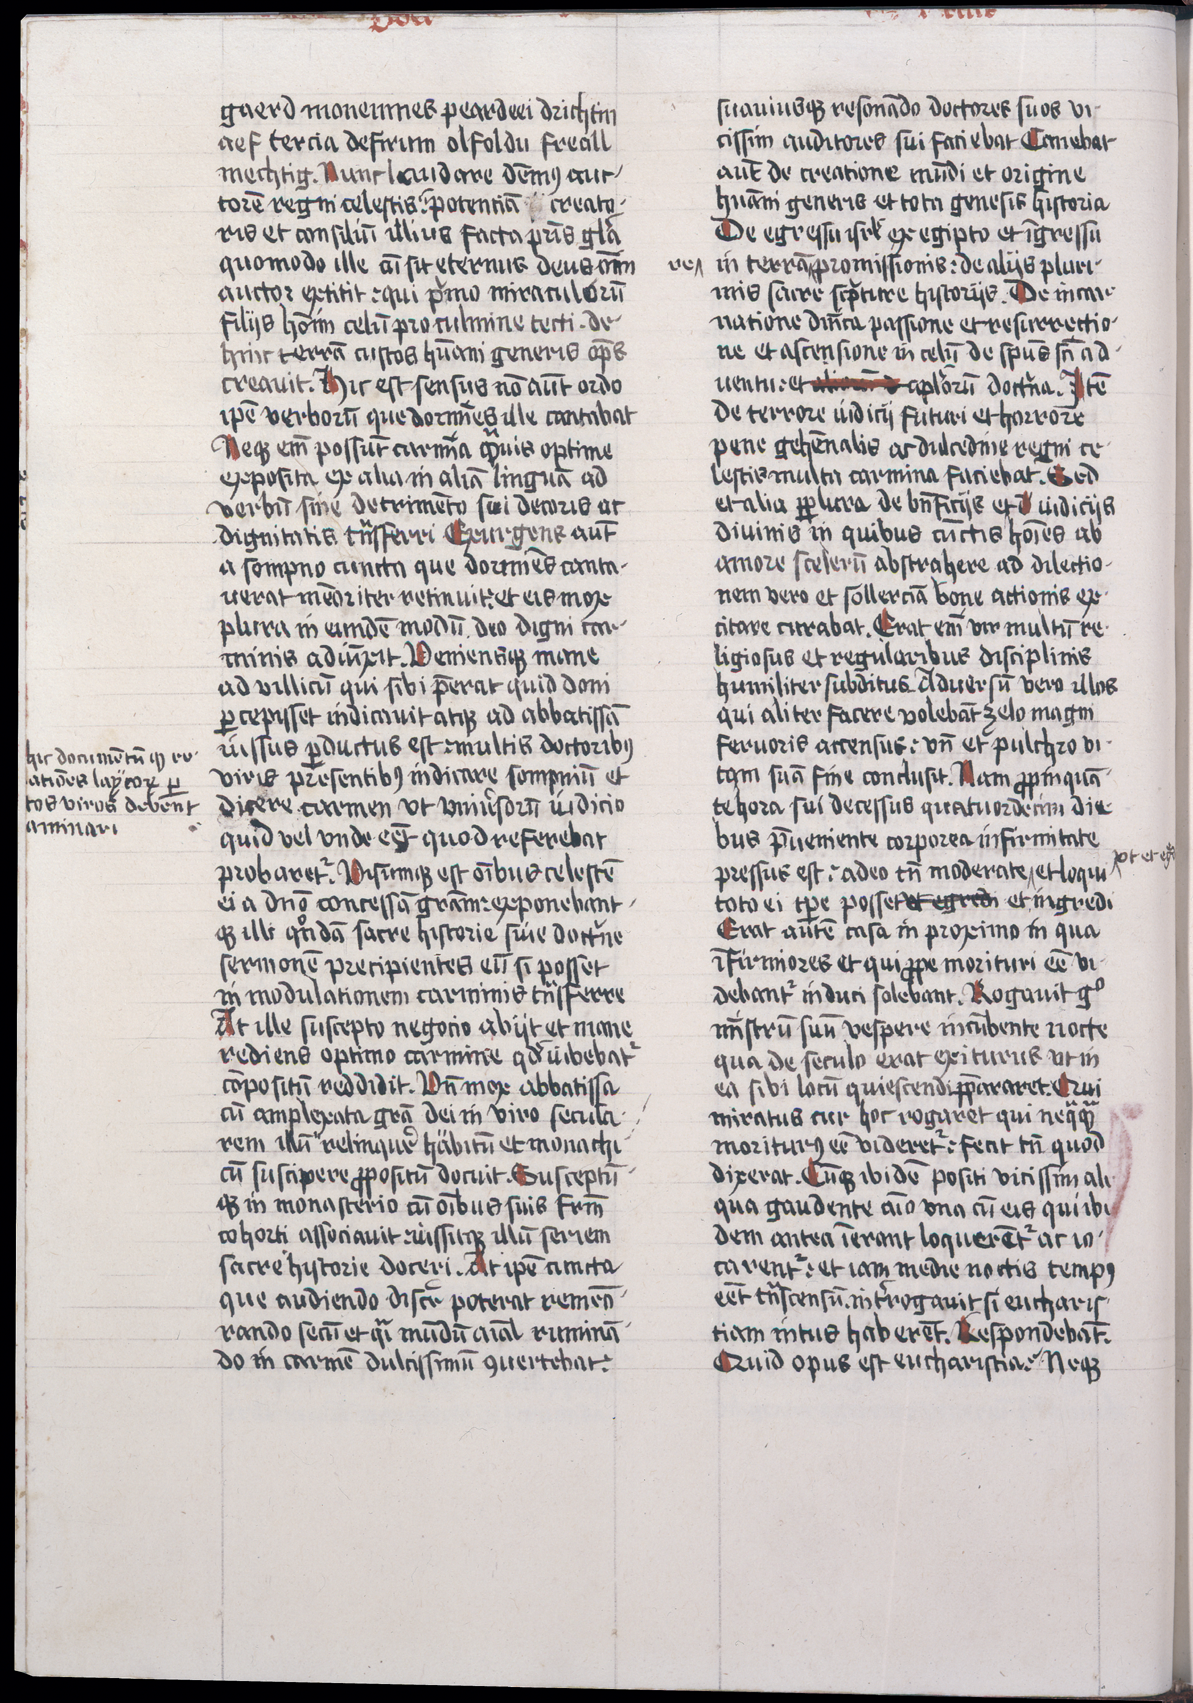 gaerd moneunnes peardeei drichtin
aef tercia defirum olfoldu freall
mechtig. Nunc laudare dēmꝰ auc-
torē regni celestis: potentiā creato-
ris et consiliū illius facta pr̄is gl̄a
quomodo ille cū sit eternus deus om̄m
auctor extitit: qui pͥmo miraculorū
filijs hōīm celū pro culmine tecti. de-
hinc terrā custos hūani generis op̄s
creauit. Hic est sensus nō aūt ordo
ipē verborū que dormiēs ille cantabat
Neqꝫ em̄ possūt carmīa qͣuis optime
exposita ex alia in aliā linguā ad
verbū sine detrimēto sui decoris ac
dignitatis tn̄sferri Exurgens aūt
a sompno cuncta que dormiēs canta-
uerat mēoriter retinuit: et eis mox
plura in eundē modū deo digni car-
minis adiūxit. Veniensqꝫ mane
ad villicū qui sibi p̄erat quid doni
ꝑcepisset indicauit atqꝫ ad abbatissā
iussus ꝑductus est: multis doctoribꝰ
viris presentibꝰ indicare sompniū et
dicere carmen vt vniuͥsorū iudicio
quid vel vnde eēt quod referebat
probaretᷣ. Visumqꝫ est oībus celestē
ei a dn̄o concessā grām: exponebant-
qꝫ illi qͦndā sacre historie siue doctͥne
sermonē precipientes eū si posset
in modulationem carminis tn̄sferre
At ille suscepto negocio abijt et mane
rediens optimo carmine qd̄ iubebatᷣ
cōpositū reddidit. Vn̄ mox abbatissa
cū amplexata grā dei in viro secula-
rem illū relinquerͤ habitū et monachi-
cū suscipere ꝓpositū docuit. Susceptū-
qꝫ in monasterio cū oībus suis frm̄
cohorti associauit: iussitqꝫ illū seriem
sacre hystorie doceri. At ipē cuncta
que audiendo discͤr poterat remēo-
rando secū et qͣi mūdū aīal ruminā-
do in carmē dulcissimū ꝯuertebat:
hic documētū qꝫ re-
tos viros debent
aminari
suauiusqꝫ resonādo doctores suos vi-
cissim auditores sui faciebat Canebat
aūt de creatione mūdi et origine
hūani generis et tota genesis historia
De egressu isrl̄ ex egipto et īgressu
re in terrā promissionis: de alijs pluri-
mis sacre scͥpture historijs. De incar-
natione dn̄ica passione et resurrectio-
ne et ascensione in celū de spūs sn̄ ad-
uentu: et apl̄orū doctͥna. Itē
de terrore iudicij futuri et horrore
pene gehēnalis ac dulcedine regni ce-
lestis multa carmina faciebat. Sed
et alia ꝑplura de bn̄ficijs et d iudicijs
diuinis in quibus cūctis hoīes ab
amore scelerū abstrahere ad dilectio-
nem vero et sollerciā bone actionis ex-
citare curabat. Erat em̄ vir multū re-
ligiosus et regularibus disciplinis
humiliter subditus Aduersū vero illos
qui aliter facere volebāt zelo magni
feruoris accensus: vn̄ et pulchro vi-
tam suā fine conclusit. Nam ꝓpinquā-
te hora sui decessus quatuordecim die-
bus p̄ueniente corporea infirmitate
pressus est: adeo tn̄ moderate et loqui
toto ei tp̄e posset et egredi et ingredi
Erat autē casa in proximo in qua
īfirmiores et qui ꝓpe morituri eē vi-
debantᷣ induci solebant. Rogauit gͦ
mīstrū suū vespere incūbente nocte
qua de seculo erat exiturus vt in
ea sibi locū quiescendi ꝑpararet. Qui
miratus cur hoc rogaret qui neqͣqͣ
moriturꝰ eē videretᷣ: fecit tn̄ quod
dixerat. Cūqꝫ ibidē positi vicissim ali-
qua gaudente aīo vna cū eis qui ibi-
dem antea īerant loquerētᷣ ac io-
carentᷣ: et iam medie noctis tempꝰ
eēt tn̄scensū. intͥrogauit si eucharis-
tiam intus haberēt. Respondebāt.
Quid opus est eucharistia: Neqꝫ